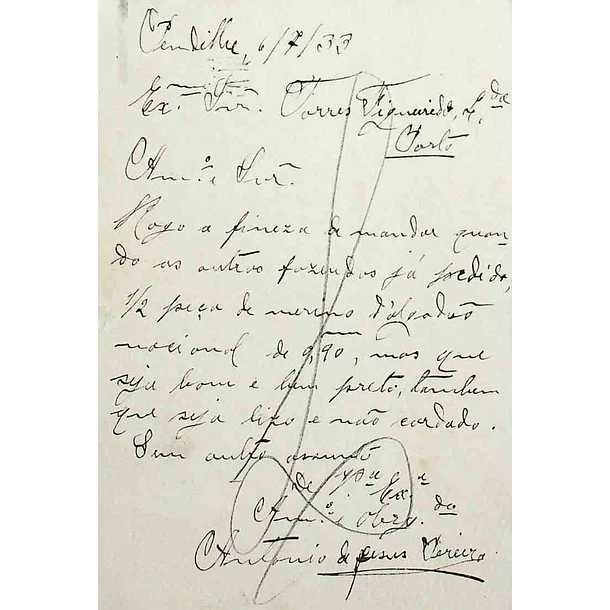 Pendilhe, 6/7/33
Ex.mo Snr. Torres Figueiredo, L.da
Porto
Am.o e Snr.
Rogo a fineza de mandar quan-
do as outras fazendas já pedida,
1/2 peça de merino d'algodão
nacional de 0,90, mas que
seja bom e bem preto, tambem
que seja lizo e não cardado.
Sem outro assunto
De V.a Ex.a
Am.o e Obrg.do
Antonio de Jesus Pereira